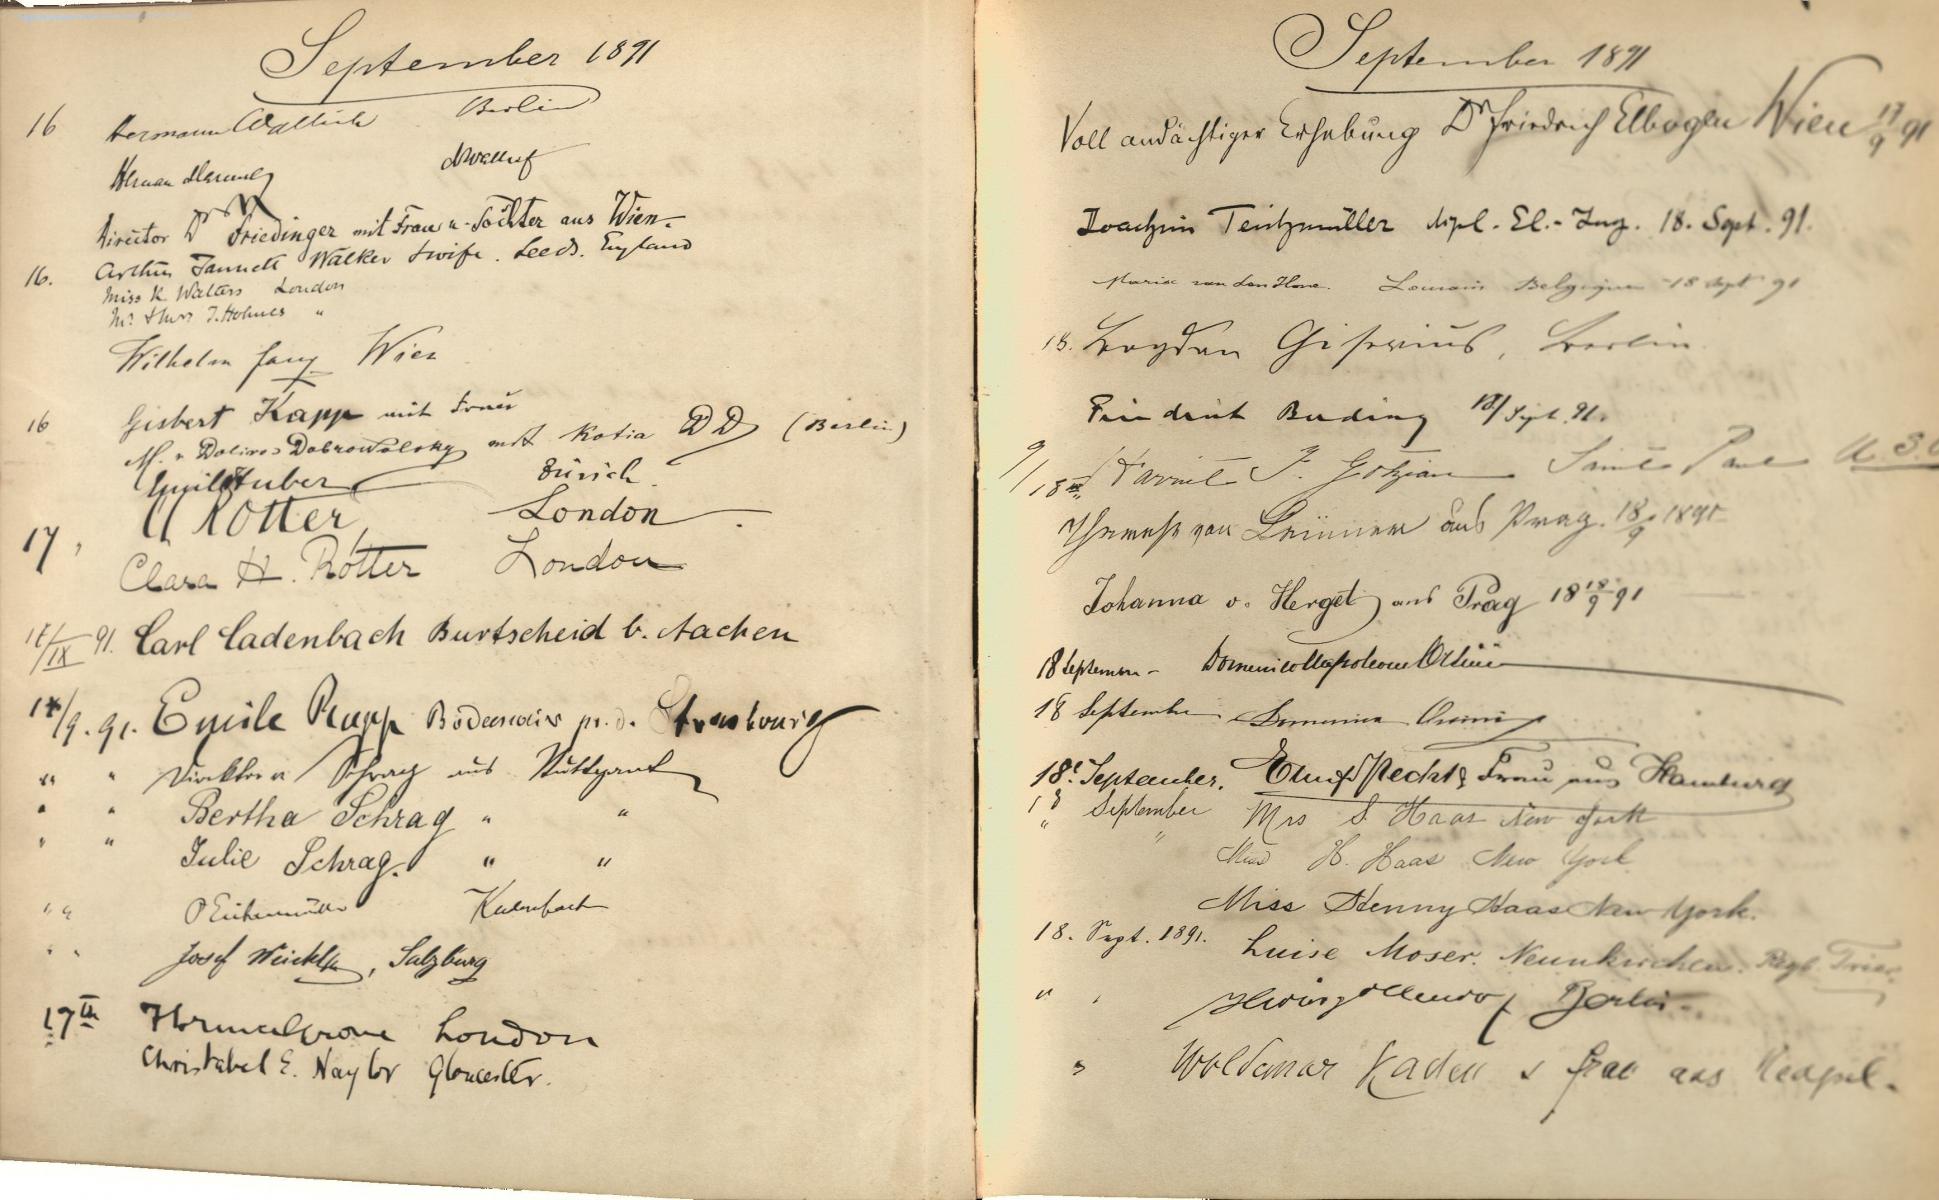 September 1891
16 Hermann Wallich Berlin
Herman
Director Dr Friedinger mit Frau u. Tochter aus Wien.
16. Arthur Jannett Walker & wife. Leeds. England
Miss K. Walters London
Mr. & Mrs J. Holmes "
Wilhelm Wien
16 Gisbert Kapp mit Frau
M. v. Dolivo-Dobrowolsky mit Katia DD (Berlin)
Emil Huber Zürich.
17, Rotter London
Clara H. Rotter London
17/IX 91. Carl Cadenbach Burtscheid b. Aachen
17/9. 91. Emile Rapp Strasbourg
" " Direktor Schrag aus Stuttgart
" " Bertha Schrag " "
" " Julie Schrag. " "
" "
" " Josef , Salzburg
17th London
Christabel E. Naylor Gloucester.
September 1891
Voll andächtiger Erhebung Dr Friedrich Elbogen Wien 17/9 91
Joachim Teichmüller dipl. El.-Ing. 18. Sept. 91.
Maria van den Hove. Louvain Belgique 18 Sept 91
18. Bogdan Gisevius, Berlin.
Friedrich Buding 18/Sept. 91.
9/18th Harriet F. Gotzian Saint Paul U.S.
Therese von aus Prag. 18/9 1891
Johanna v. Herget aus Prag 18 18/9 91
18 September - Domenico Napoleone Orsini
18 September Orsini
18. September. & Frau aus Hamburg
18 September Mrs S. Haas New York
" " Miss H. Haas New York
Miss Henny Haas New York.
18. Sept. 1891. Luise Moser. Neunkirchen. Regb. Trier.
" " Berlin.
" Woldemar Kaden & Frau aus Neapel.